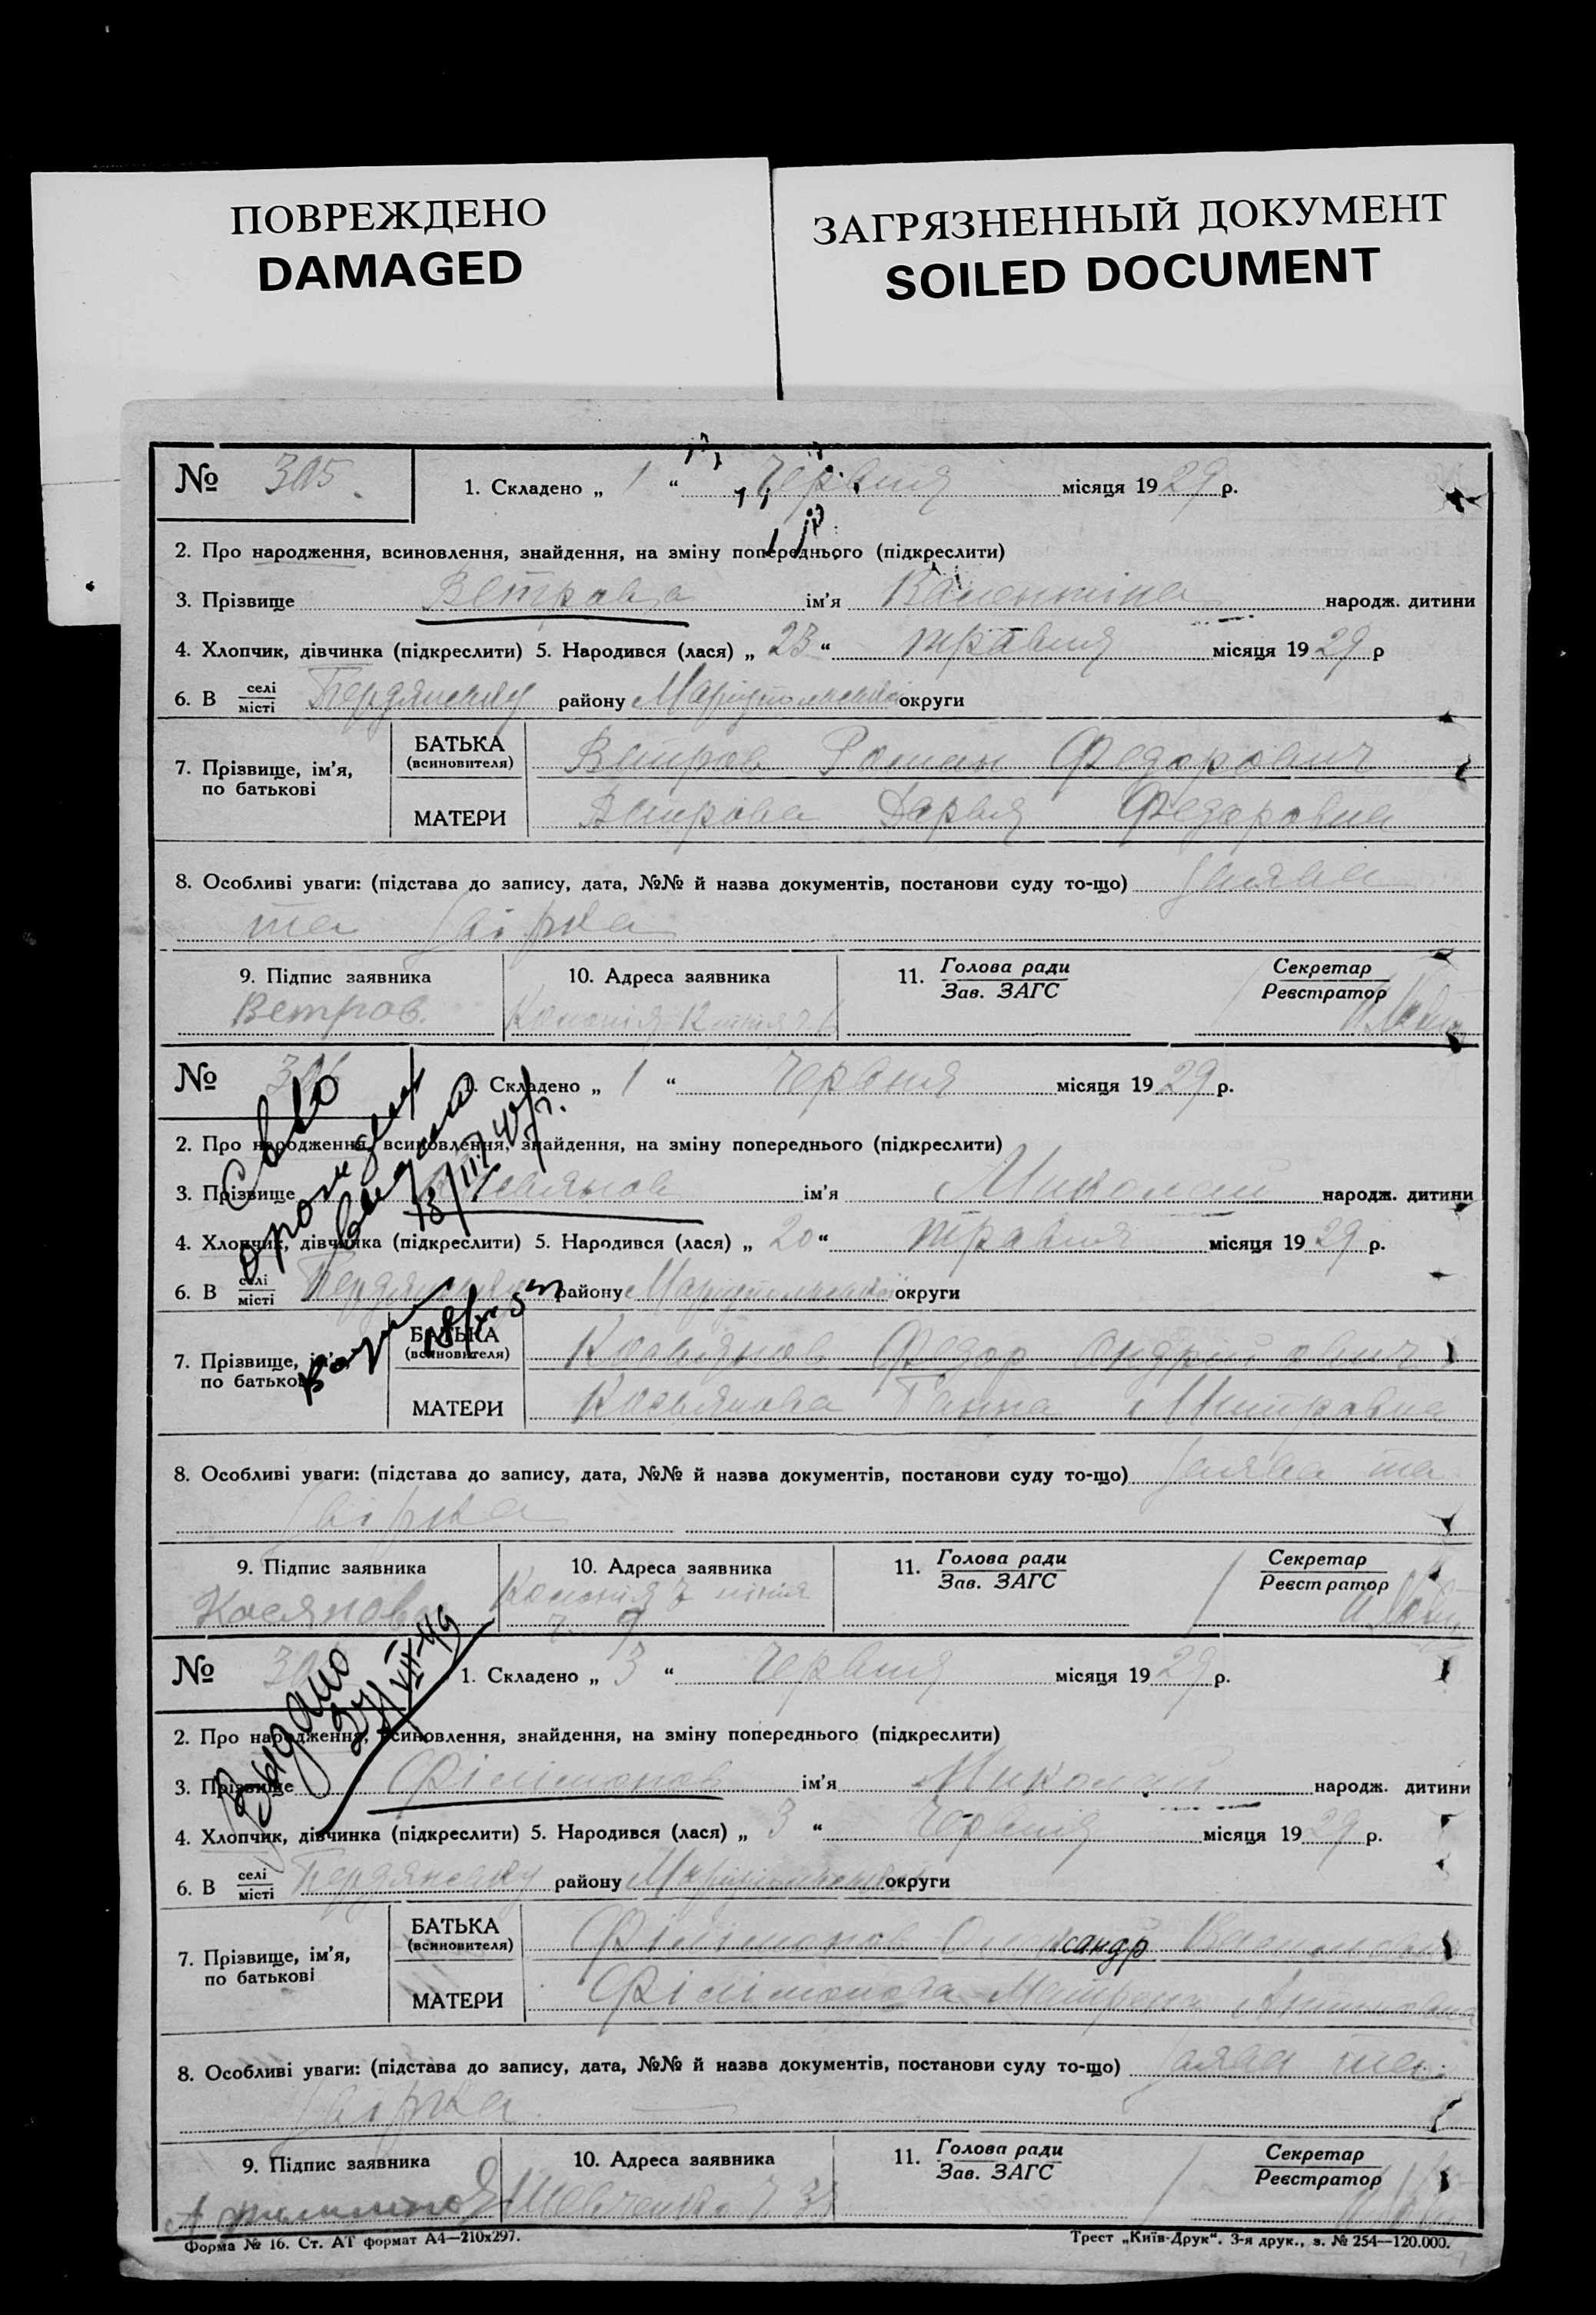 ПОВРЕЖДЕНО
DAMAGED
ЗАГРЯЗНЕННЫЙ ДОКУМЕНТ
SOILED DOCUMENT
№ 305. 1. Складено „ 1 “ червня місяця 19 29 р.
2. Про народження, всиновлення, знайдення, на зміну попереднього (підкреслити)
3. Прізвище Ветрова ім'я Валентіна народж. дитини
4. Хлопчик, дівчинка (підкреслити) 5. Народився (лася) „ 23 “ травня місяця 19 29 р
6. В селі/місті Бердянську району Маріупольської округи
7. Прізвище, ім'я, по батькові
БАТЬКА (всиновителя) Ветров Роман Федорович
МАТЕРИ Ветрова Дарья Федоровна
8. Особливі уваги: (підстава до запису, дата, №№ й назва документів, постанови суду то-що) заява
та
9. Підпис заявника 10. Адреса заявника 11. Голова ради/Зав. ЗАГС Секретар/Реєстратор
Ветров. Колонія 12 лінія
№ 1. Складено „ 1 “ червня місяця 19 29 р.
Св-во
о рожден
выдано
2. Про народження, всиновлення, знайдення, на зміну попереднього (підкреслити)
3. Прізвище ім'я Миколай народж. дитини
4. Хлопчик, дівчинка (підкреслити) 5. Народився (лася) „ 20 “ травня місяця 19 29 р.
6. В селі/місті Бердянську району Маріупольської округи
7. Прізвище, ім'я, по батькові
БАТЬКА (всиновителя) Косьянов Федор Андрійович
МАТЕРИ Косьянова Ганна Митровна
8. Особливі уваги: (підстава до запису, дата, №№ й назва документів, постанови суду то-що) заява та
9. Підпис заявника 10. Адреса заявника 11. Голова ради/Зав. ЗАГС Секретар/Реєстратор
Косянов Колонія 7 лінія
№ 1. Складено „ 3 “ червня місяця 19 29 р.
Выдано
27/VII-49
2. Про народження, всиновлення, знайдення, на зміну попереднього (підкреслити)
3. Прізвище Філімонов ім'я Миколай народж. дитини
4. Хлопчик, дівчинка (підкреслити) 5. Народився (лася) „ 3 “ червня місяця 19 29 р.
6. В селі/місті Бердянську району Маріупольської округи
7. Прізвище, ім'я, по батькові
БАТЬКА (всиновителя) Філімонов Олександр
МАТЕРИ Філімонова Матрена
8. Особливі уваги: (підстава до запису, дата, №№ й назва документів, постанови суду то-що) заява та
9. Підпис заявника 10. Адреса заявника 11. Голова ради/Зав. ЗАГС Секретар/Реєстратор
Шевченко
Форма № 16. Ст. АТ формат А4—210х297.
Трест „Київ-Друк“. 3-я друк., з. № 254—120.000.